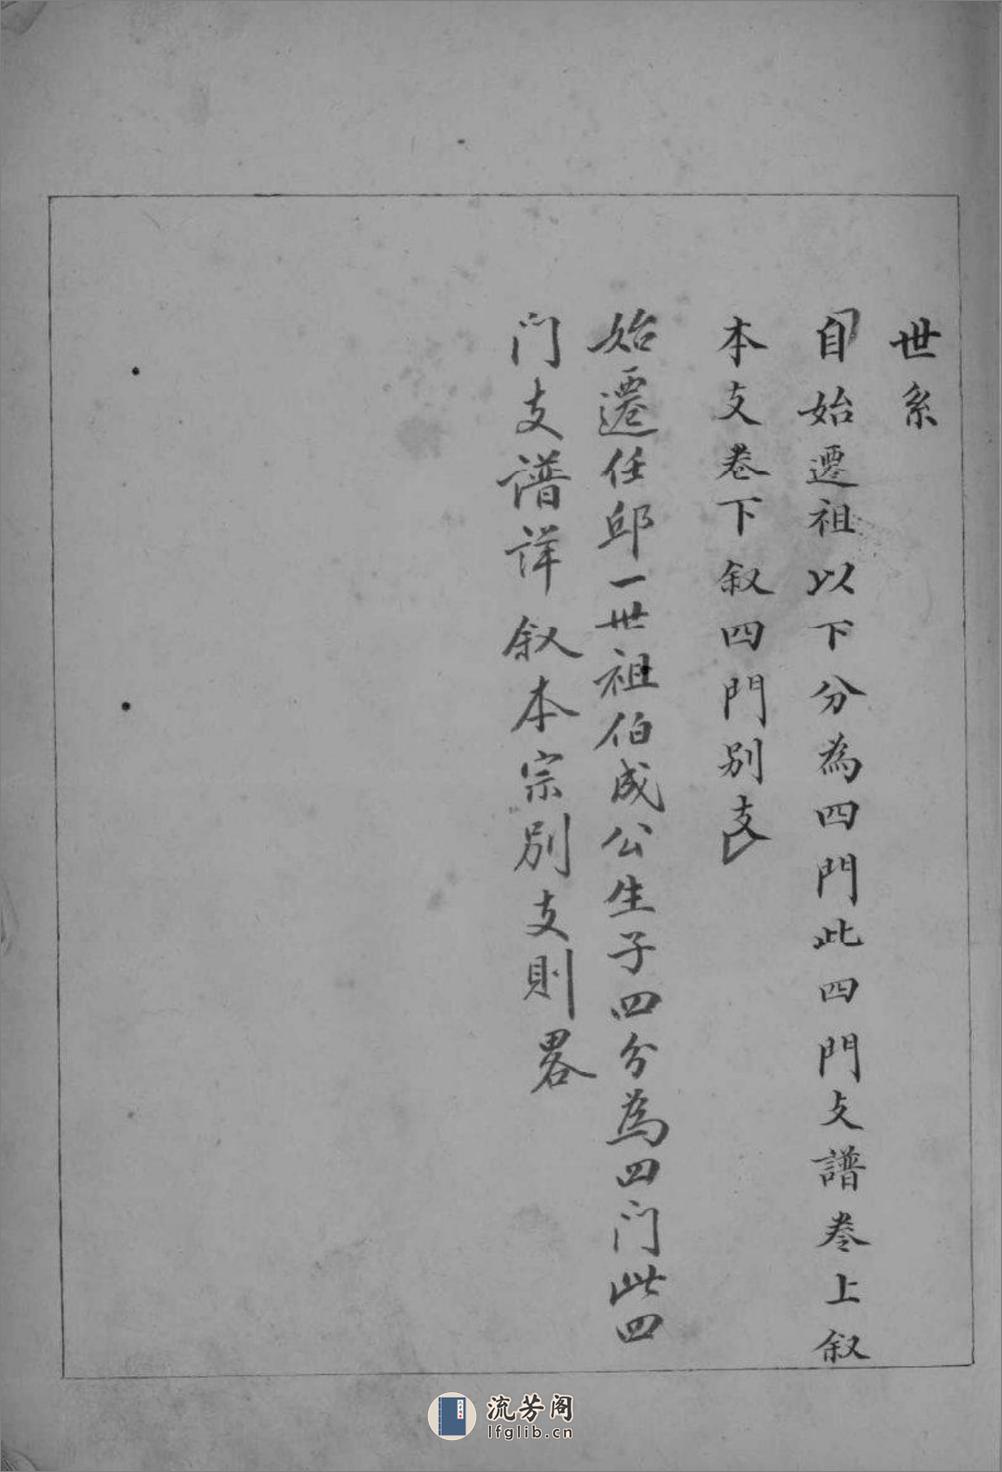 世系
自始遷祖以下分為四門此四門支譜卷上叙
本支卷下叙四門别支
始遷任邱一世祖伯成公生子四分為四门此四
门支譜详叙本宗别支則畧
流芳阁
lfglib.cn